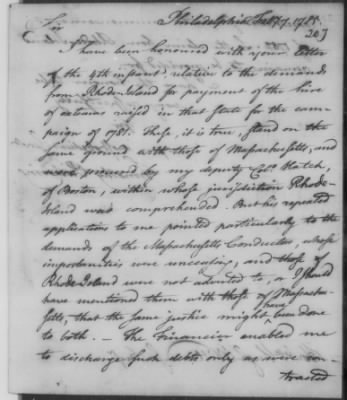 Philadelphia July 7. 1785.
203
Sir
I have been honoured with your letter
of the 4th instant, relative to the demands
from Rhode-Island for payment of the hire
of ox teams raised in that State for the cam-
paign of 1781. These, it is true, stand on the
same ground with those of Massachusetts; and
were procured by my deputy Colo. Hatch,
of Boston, within whose jurisdiction Rhode-
Island was comprehended. But his repeated
applications to me pointed particularly to the
demands of the Massachusetts Conductors, whose
importunities were unceasing; and those of
Rhode Island were not adverted to, or I should
have mentioned them with those of Massachu-
setts, that the same justice might have been done
to both. — The Financier enabled me
to discharge such debts only as were con-
tracted